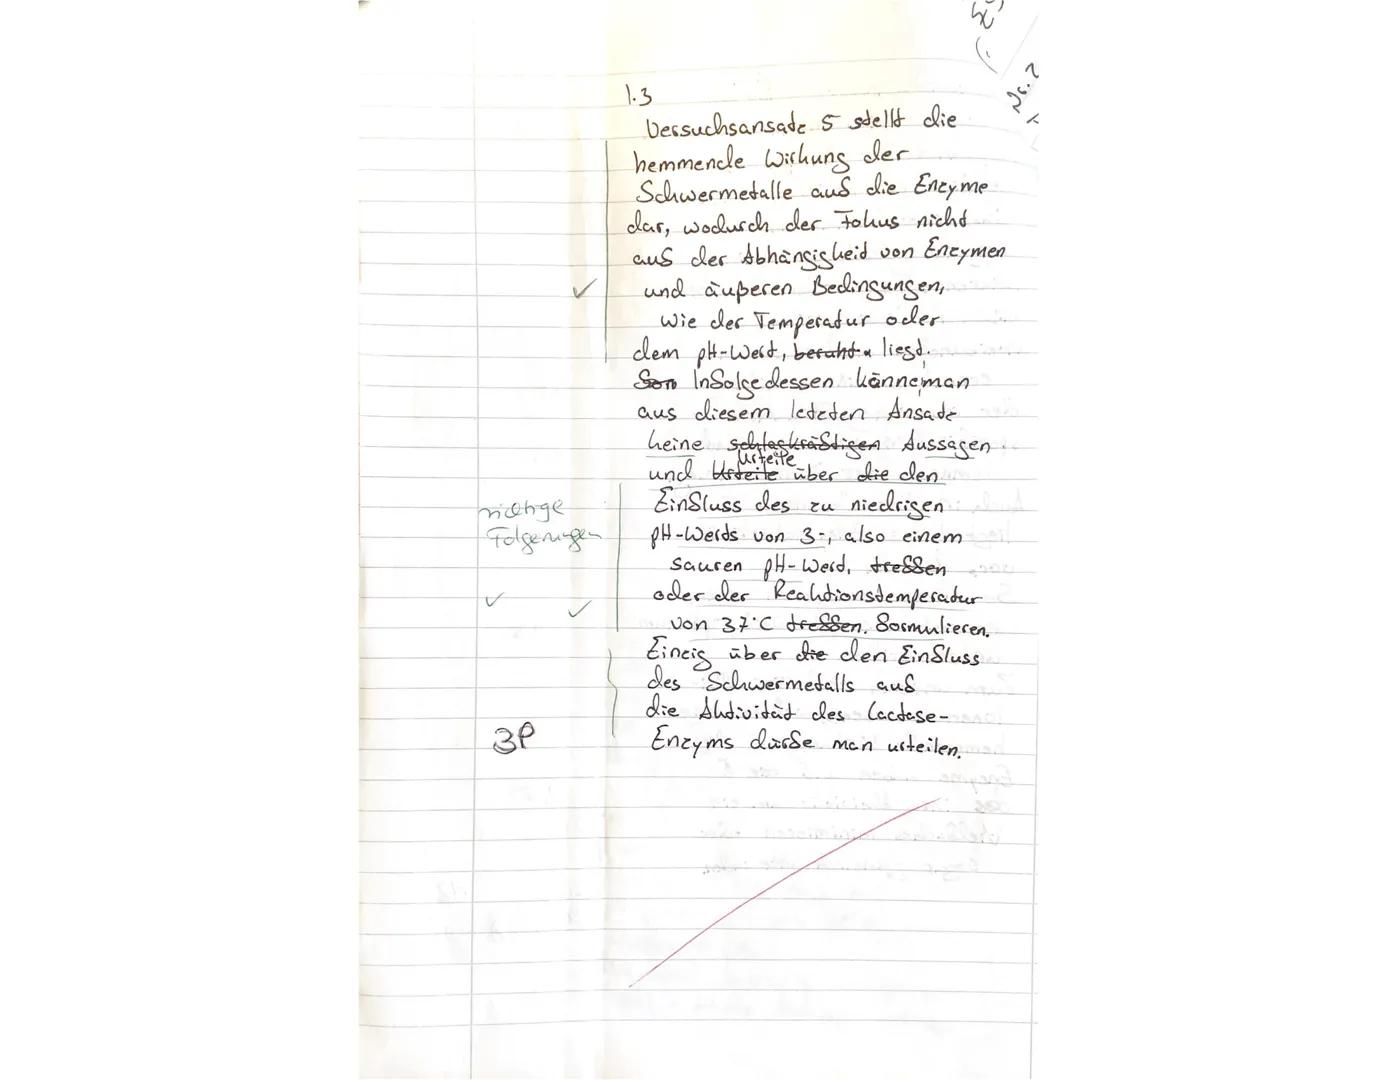 1.3
Versuchsansatz 5 stellt die
hemmende Wirkung der
Schwermetalle auf die Enzyme
dar, wodurch der Fokus nicht
auf der Abhängigkeit von Enzymen
und äußeren Bedingungen,
wie der Temperatur oder
dem pH-Wert, beruht liegt.
Infolgedessen könne man
aus diesem letzten Ansatz
keine schlagkräftigen Aussagen
Urteile
und Urteile über die den
Einfluss des zu niedrigen
richtige
Folgerungen
pH-Werts von 3, also einem
sauren pH-Wert, treffen
oder der Reaktionstemperatur
✓ ✓
von 37°C treffen. formulieren.
Einzig über die den Einfluss
des Schwermetalls auf
die Aktivität des Lactase-
Enzyms dürfe man urteilen.
3P